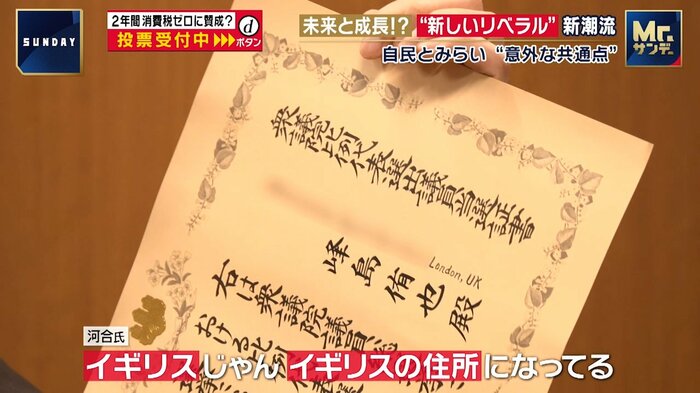 SUNDAY
2年間 消費税ゼロに賛成?
投票受付中>>>
d
ボタン
未来と成長!? “新しいリベラル”新潮流
自民とみらい “意外な共通点”
Mr.
サンデー
衆議院比例代表選出議員当選証書
London, UK
峰島侑也殿
右は衆議院議員総
おける比例
河合氏
イギリスじゃん イギリスの住所になってる